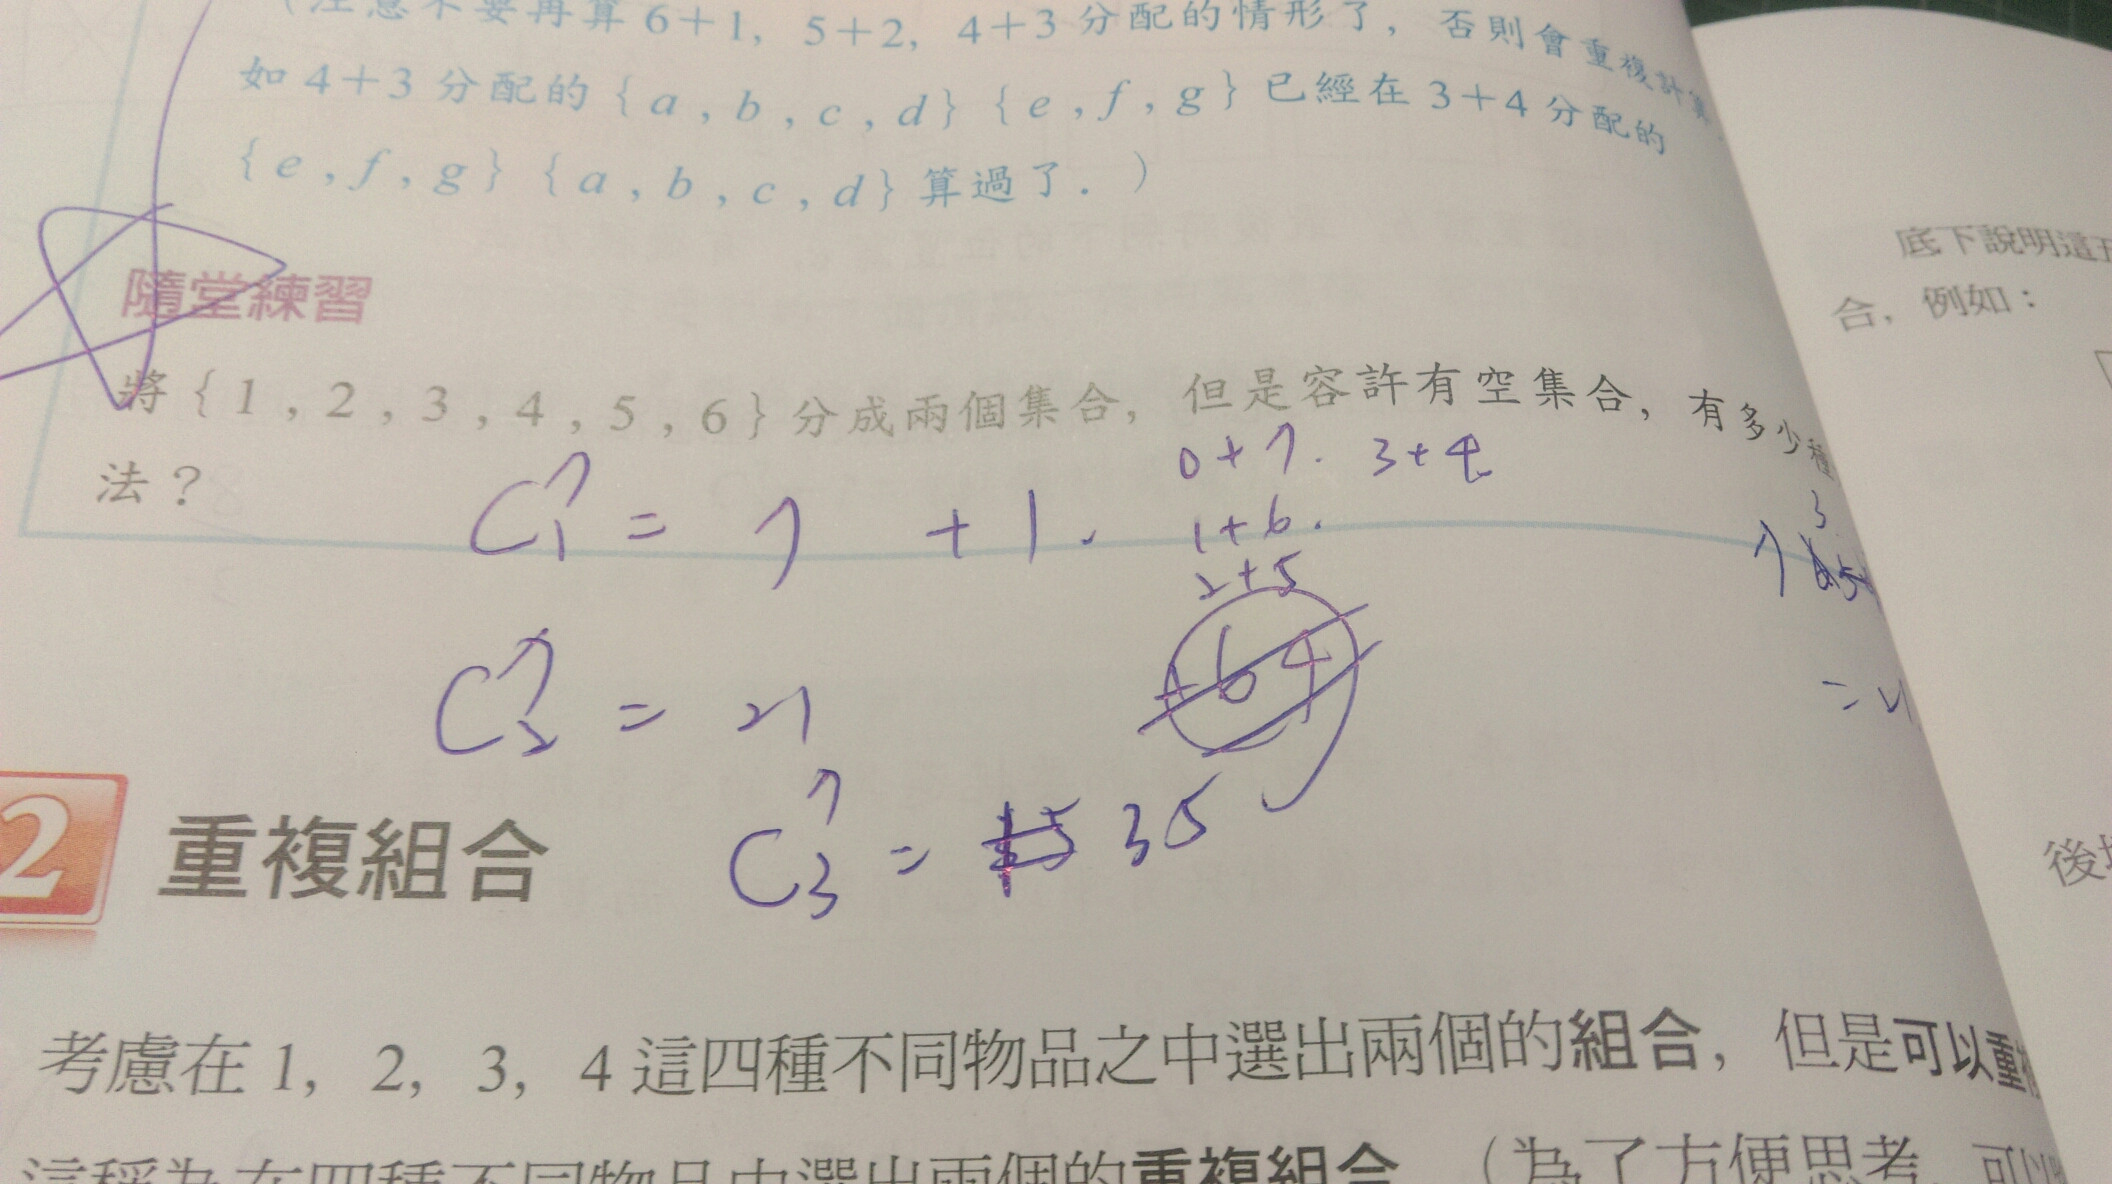 （注意不要再算 6+1，5+2，4+3 分配的情形了，否則會重複計算
如 4+3 分配的 {a , b , c , d} {e , f , g} 已經在 3+4 分配的
{e , f , g} {a , b , c , d} 算過了．）
隨堂練習
將 {1 , 2 , 3 , 4 , 5 , 6} 分成兩個集合，但是容許有空集合，有多少種
法？
0+7. 3+4
C⁷₁ = 7 +1.
1+6.
2+5
C⁷₂ = 21
64
C⁷₃ = 35
2 重複組合
考慮在 1，2，3，4 這四種不同物品之中選出兩個的組合，但是可以重
這稱為在四種不同物品中選出兩個的重複組合（為了方便思考，可以
底下說明這五
合，例如：
後